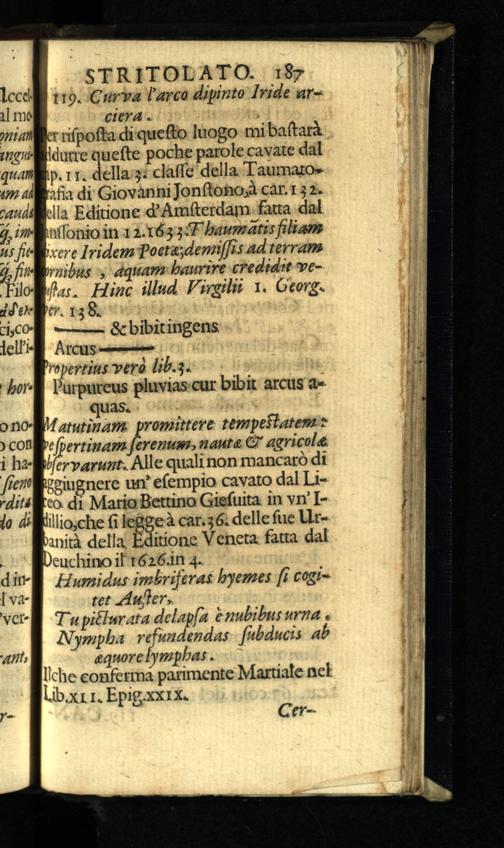 STRITOLATO. 187
119. Curva l'arco dipinto Iride ar-
ciera.
Per risposta di questo luogo mi bastarà
addurre queste poche parole cavate dal
cap. 11. della 3. classe della Taumato-
grafia di Giovanni Jonstono, à car. 132.
della Editione d'Amsterdam fatta dal
Janssonio in 12. 1633. Thaumātis filiam
dixere Iridem Poetæ; demissis ad terram
cornibus, aquam haurire credidit ve-
tustas. Hinc illud Virgilii 1. Georg.
ver. 138.
——— & bibit ingens
Arcus ———
Propertius verò lib. 3.
Purpureus pluvias cur bibit arcus a-
quas.
Matutinam promittere tempestatem:
vespertinam serenum, nautæ & agricolæ
observarunt. Alle quali non mancarò di
aggiugnere un' esempio cavato dal Li-
ceo di Mario Bettino Giesuita in vn' I-
dillio, che si legge à car. 36. delle sue Ur-
banità della Editione Veneta fatta dal
Deuchino il 1626. in 4.
Humidus imbriferas hyemes si cogi-
tet Auster,
Tu picturata delapsa è nubibus urna.
Nympha refundendas subducis ab
æquore lymphas.
Ilche conferma parimente Martiale nel
Lib. XII. Epig. XXIX.
Cer-